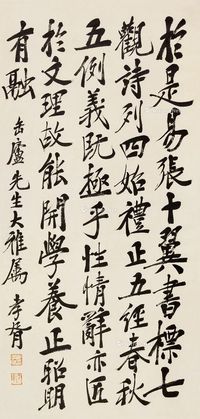 於是易張十翼書標七
觀詩列四始禮正五經春秋
五例義既極乎性情辭亦匠
於文理故能開學養正昭明
有融 缶廬先生大雅屬 孝胥